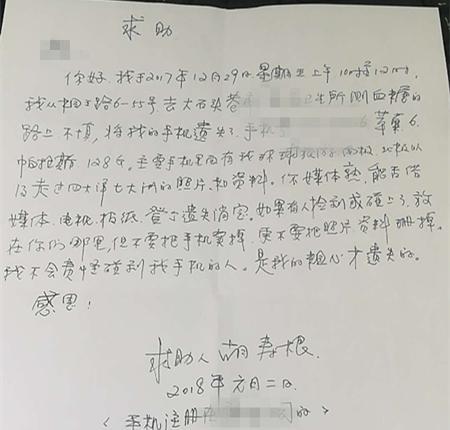 求助
你好,我于2017年12月29日星期五上午10时至12时,
我从中山路6-55号去大石头巷 生所测血糖的
路上 不慎,将我的手机遗失了,手机 6 苹果6.
128G.主要手机里面有我 南极 北极以
及走过四大洋七大洲的照片,和资料。你媒体熟,能否借
媒体.电视.报纸.登 遗失消息.如果有人检到或碰上了.放
在你们那里,但不要把手机卖掉.更不要把照片资料删掉.
我不会责怪碰到我手机的人。是我的粗心才遗失的。
感恩!
求助人 胡寿根.
2018年元月二日.
(手机注册 的)